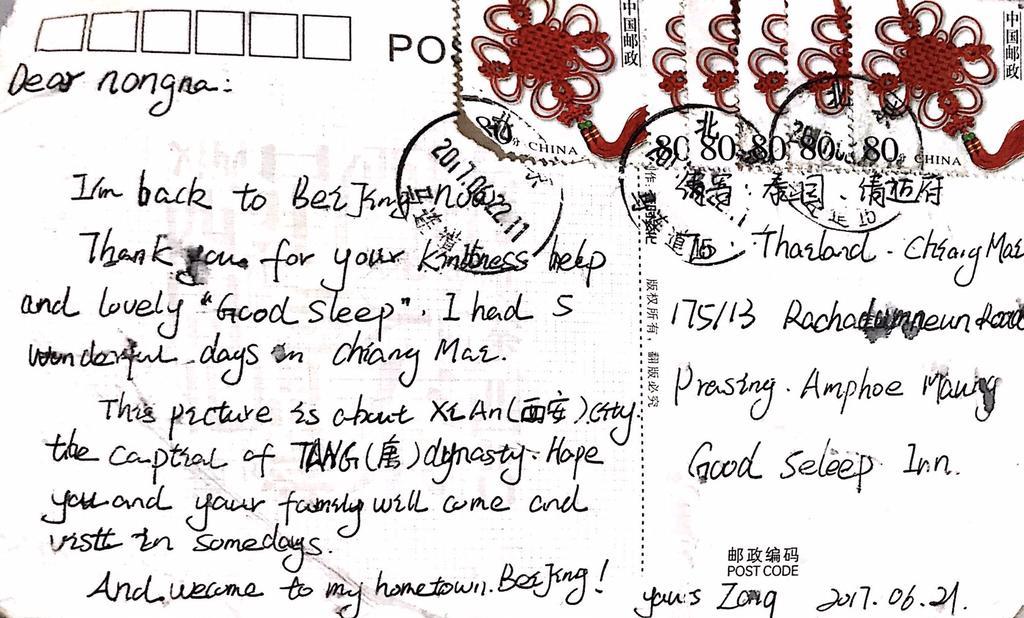 PO
中国邮政
中国邮政
80分 CHINA
80 80 80 80 80分 CHINA
北
北
2017.06.22.11
Dear nongna:
I'm back to BeiJing now.
Thank you for your kindness help
and lovely "Good Sleep". I had 5
wonderful days in Chiang Mai.
This picture is about XiAn(西安)city
the captial of TANG(唐)dynasty. Hope
you and your family will come and
visit in somedays.
And wecome to my hometown. BeiJing!
寄: 泰国. 清迈府
TO: Thailand. Chiang Mai
175/13 Rachadamneun Road
Prasing. Amphoe Maung
Good Seleep Inn.
版权所有, 翻版必究
邮政编码
POST CODE
you's Zong 2017.06.21.